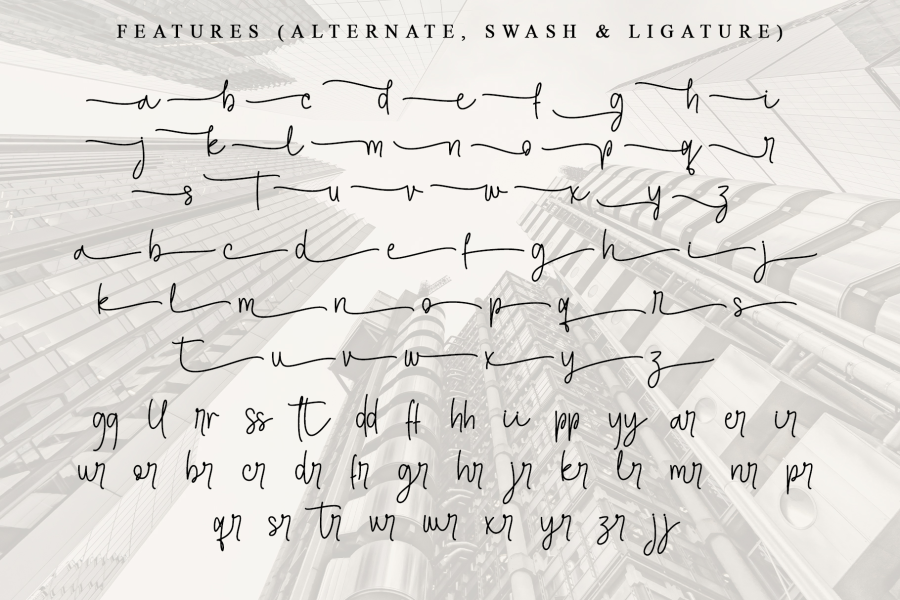 FEATURES (ALTERNATE, SWASH & LIGATURE)
a b c d e f g h i
j k l m n o p q r
s t u v w x y z
a b c d e f g h i j
k l m n o p q r s
t u v w x y z
gg ll rr ss tt dd ff hh ii pp yy ar er ir
ur or br cr dr fr gr hr jr kr lr mr nr pr
qr sr tr vr wr xr yr zr jj